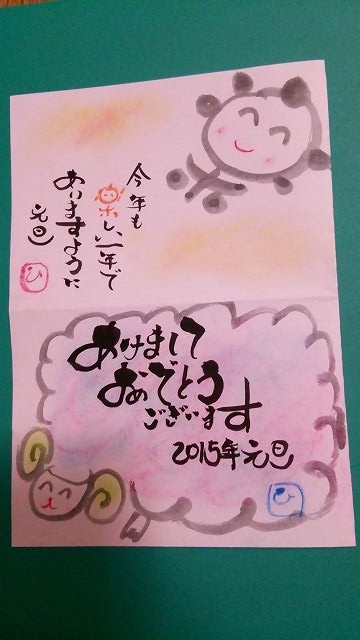 今年も
楽しい一年で
ありますように
元旦
ひ
あけまして
おめでとう
ございます
2015年元旦
ひ